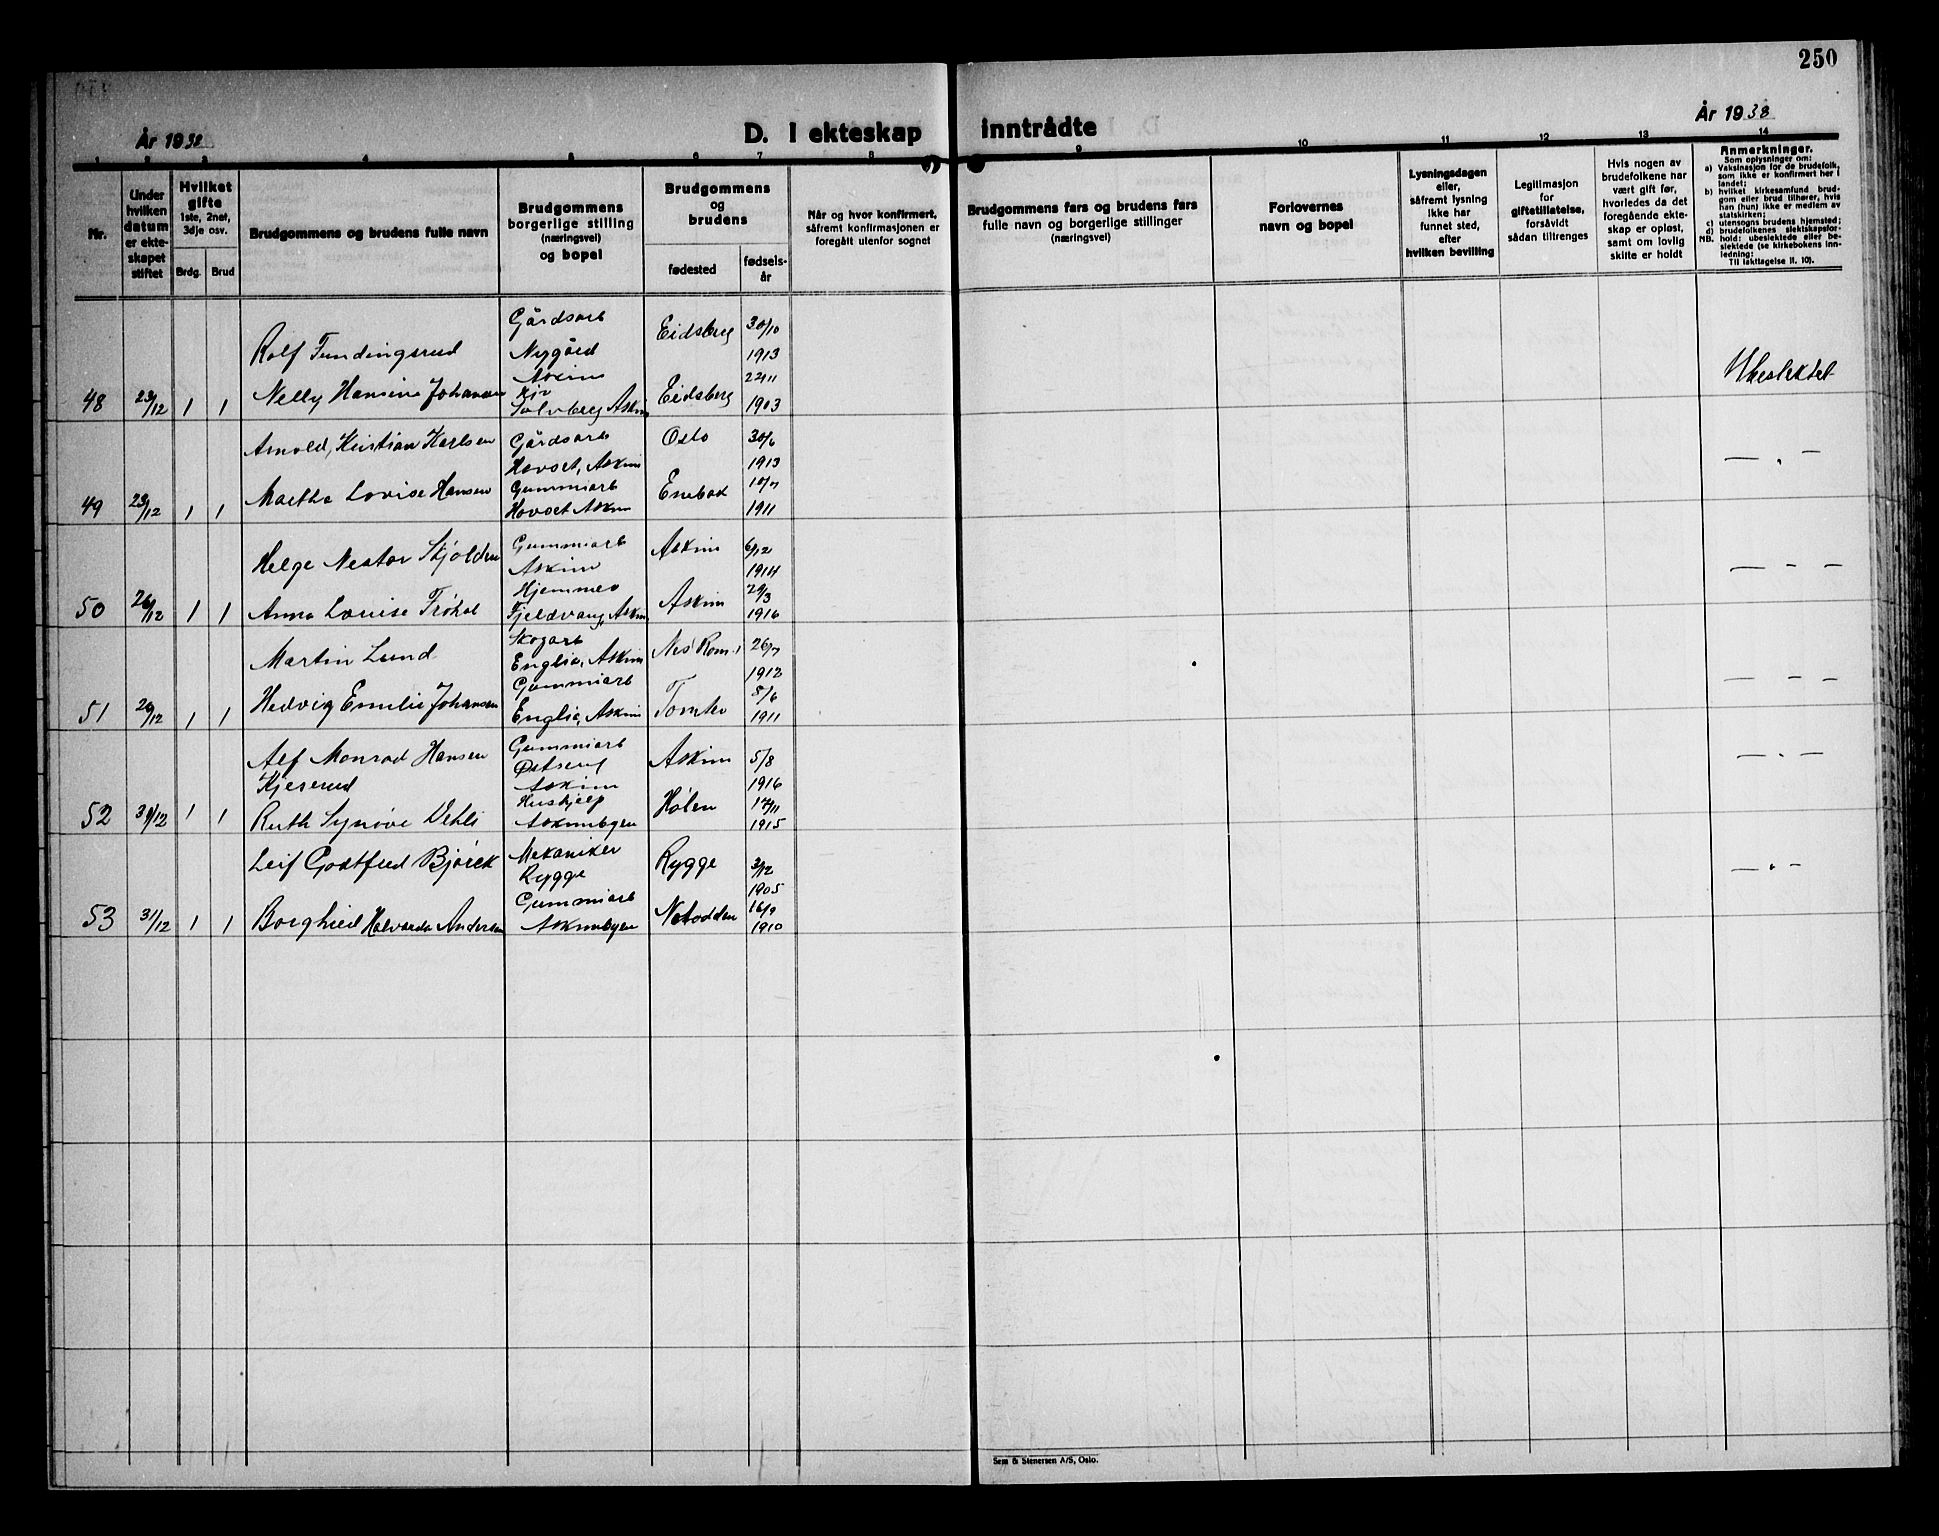 250
År 1938
D. I ekteskap inntrådte
År 1938
1 2 3 4 5 6 7 8 9 10 11 12 13 14
Nr.
Under hvilken datum er ekteskapet stiftet
Hvilket gifte
1ste, 2net, 3dje osv.
Brdg. Brud
Brudgommens og brudens fulle navn
Brudgommens
borgerlige stilling
(næringsvei)
og bopel
Brudgommens
og
brudens
fødested
fødsels-
år
Når og hvor konfirmert,
såfremt konfirmasjonen er
foregått utenfor sognet
Brudgommens fars og brudens fars
fulle navn og borgerlige stillinger
(næringsvei)
Forlovernes
navn og bopel
Lysningsdagen
eller,
såfremt lysning
ikke har
funnet sted,
efter
hvilken bevilling
Legitimasjon
for
giftetillatelse,
forsåvidt
sådan tiltrenges
Hvis nogen av
brudefolkene har
vært gift før,
hvorledes da det
foregående ekte-
skap er opløst,
samt om lovlig
skifte er holdt
Anmerkninger.
Som oplysninger om:
a) Vaksinasjon for de brudefolk,
som ikke er konfirmert her i
landet;
b) hvilket kirkesamfund brud-
gom eller brud tilhører, hvis
han (hun) ikke er medlem av
statskirken;
c) utensogns brudens hjemsted;
d) brudefolkenes slektskapsfor-
NB. hold: ubeslektede eller be-
slektede (se kirkebokens inn-
ledning:
Til iakttagelse II. 10).
48 23/12 1 1
Rolf Fundingsrud
Gårdsarb
Nygård
Askim
Eidsberg 30/10
1913
Nelly Hansine Johansen
Solvberg Askim
Eidsberg 22/11
1903
Ubeslektet
49 23/12 1 1
Arnold, Kristian Karlsen
Gårdsarb
Hovset, Askim
Oslo 30/6
1913
Martha Lovise Hansen
Gummiarb
Hovset Askim
Enebak 10/7
1911
— " —
50 26/12 1 1
Helge Nestor Skjolden
Gummiarb
Askim
Askim 6/12
1914
Anna Louise Trøkal
Hjemmev
Fjeldvang, Askim
Askim 29/3
1916
— – –
51 29/12 1 1
Martin Lund
Skogarb
Englia, Askim
Nes Rom. 26/7
1912
Hedvig Emilie Johansen
Gummiarb
Englia, Askim
Tomter 5/6
1911
— – –
52 31/12 1 1
Alf Monrad Hansen
Kjeserud
Gummiarb
Askim
Askim 5/8
1916
Ruth Synøve Dehli
Hushjelp
Askimbyen
Hølen 17/11
1915
— " —
53 31/12 1 1
Leif Godtfred Bjørck
Mekaniker
Rygge
Rygge 3/12
1905
Borghild Halvarda Andersen
Gummiarb
Askimbyen
Notodden 16/9
1910
— " —
Sem & Stenersen A/S, Oslo.